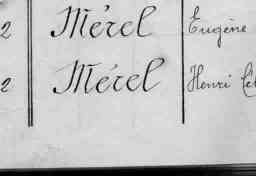 2 Mérel Eugène
2 Mérel Henri